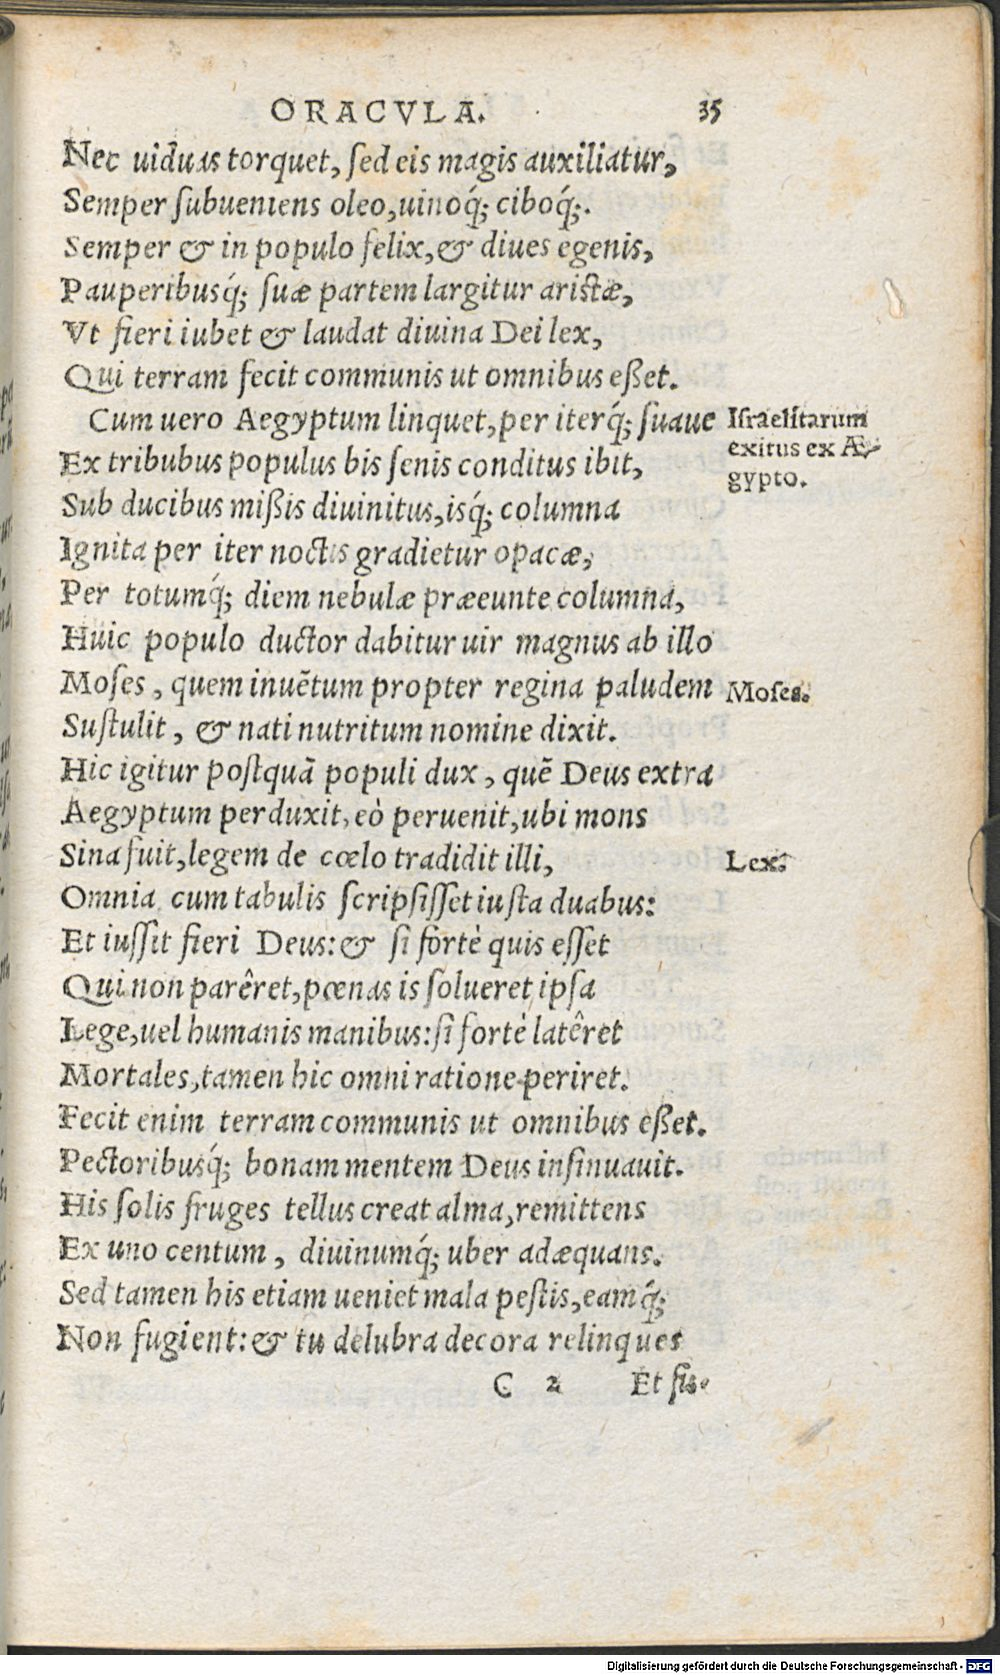 ORACVLA. 35
Nec uiduas torquet, ſed eis magis auxiliatur,
Semper ſubueniens oleo,uinoq́; ciboq́;.
Semper & in populo felix,& diues egenis,
Pauperibusq́; ſuæ partem largitur ariſtæ,
Vt fieri iubet & laudat diuina Dei lex,
Qui terram fecit communis ut omnibus eßet.
Cum uero Aegyptum linquet,per iterq́; ſuaue
Iſraelitarum
exitus ex Æ-
gypto.
Ex tribubus populus bis ſenis conditus ibit,
Sub ducibus mißis diuinitus,isq́; columna
Ignita per iter noctis gradietur opacæ,
Per totumq́; diem nebulæ præeunte columna,
Huic populo ductor dabitur uir magnus ab illo
Moſes , quem inuẽtum propter regina paludem
Moſes.
Suſtulit , & nati nutritum nomine dixit.
Hic igitur poſtquã populi dux , quẽ Deus extra
Aegyptum perduxit, eò peruenit,ubi mons
Sina fuit,legem de cœlo tradidit illi,
Lex.
Omnia cum tabulis ſcripſiſſet iuſta duabus:
Et iuſſit fieri Deus:& ſi fortè quis eſſet
Qui non parêret,pœnas is ſolueret ipſa
Lege,uel humanis manibus:ſi fortè latêret
Mortales,tamen hic omni ratione periret.
Fecit enim terram communis ut omnibus eßet.
Pectoribusq́; bonam mentem Deus inſinuauit.
His ſolis fruges tellus creat alma,remittens
Ex uno centum , diuinumq́; uber adæquans.
Sed tamen his etiam ueniet mala peſtis,eamq́;
Non fugient:& tu delubra decora relinques
C 2 Et ſis-
Digitalisierung gefördert durch die Deutsche Forschungsgemeinschaft - DFG